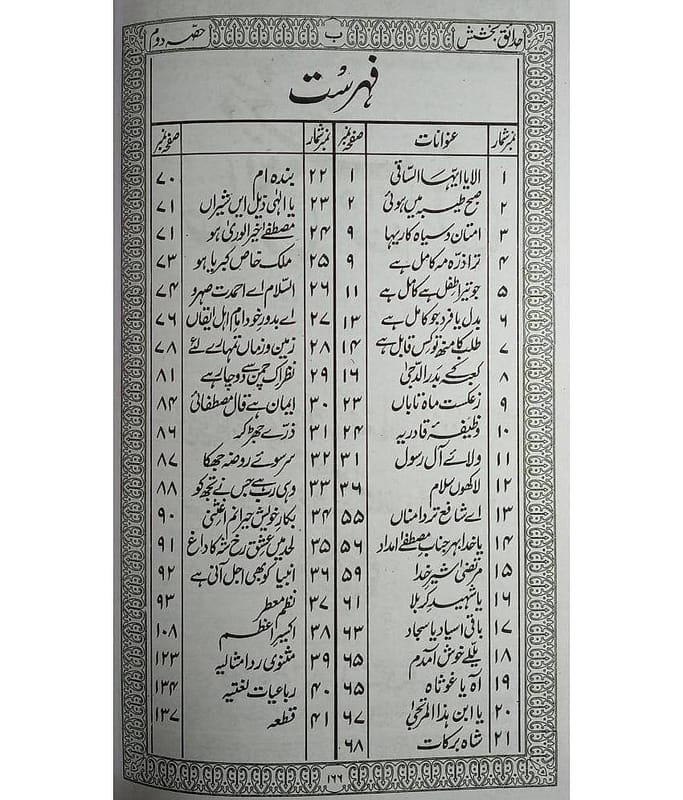 حدائق بخشش
ب
حصہ دوم
فہرست
نمبر شمار عنوانات صفحہ نمبر
۱ الا یا ایہا الساقی ۱
۲ صبح طیبہ میں ہوئی ۲
۳ امتان و سیاہ کاریہا ۹
۴ ترا ذرہ مہ کامل ہے ۹
۵ جو تیرا طفل ہے کامل ہے ۱۱
۶ بدل یا فرد جو کامل ہے ۱۳
۷ طلب کا منھ تو کس قابل ہے ۱۴
۸ کعبہ کے بدر الدجیٰ ۱۶
۹ زعکست ماہ تاباں ۲۳
۱۰ وظیفۂ قادریہ ۲۴
۱۱ ولائے آل رسول ۳۱
۱۲ لاکھوں سلام ۳۶
۱۳ اے شافع تردامناں ۵۵
۱۴ یا خدا بہر جناب مصطفےٰ امداد ۵۶
۱۵ مرتضیٰ شیر خدا ۵۹
۱۶ یا شہید کربلا ۶۱
۱۷ باقی اسیاد یا سجاد ۶۳
۱۸ بللے خوش آمدم ۶۵
۱۹ آہ یا غوثاہ ۶۵
۲۰ یا ابن ہذا المرتجیٰ ۶۷
۲۱ شاہ برکات ۶۸
نمبر شمار صفحہ نمبر
۲۲ بندہ ام ۷۰
۲۳ یا الٰہی ذیل ایں شیراں ۷۱
۲۴ مصطفےٰ خیر الوریٰ ہو ۷۱
۲۵ ملک خاص کبریا ہو ۷۳
۲۶ السلام اے احمدت صہر و ۷۴
۲۷ اے بدور خود امام اہل ایقاں ۷۶
۲۸ زمین و زماں تمہارے لئے ۷۸
۲۹ نظر اک چمن سے دوچار ہے ۸۱
۳۰ ایمان ہے قال مصطفائی ۸۴
۳۱ ذرے جھڑ کر ۸۶
۳۲ سر سوئے روضہ جھکا ۸۷
۳۳ وہی رب ہے جس نے تجھ کو ۸۸
۳۴ بکار خویش حیرانم اغثنی ۹۰
۳۵ لحد میں عشق رخ شہ کا داغ ۹۱
۳۶ انبیا کو بھی اجل آنی ہے ۹۲
۳۷ نظم معطر ۹۳
۳۸ اکسیر اعظم ۱۰۸
۳۹ مثنوی ردِ امثالیہ ۱۲۳
۴۰ رباعیات نعتیہ ۱۳۴
۴۱ قطعہ ۱۳۷
۱۶۶